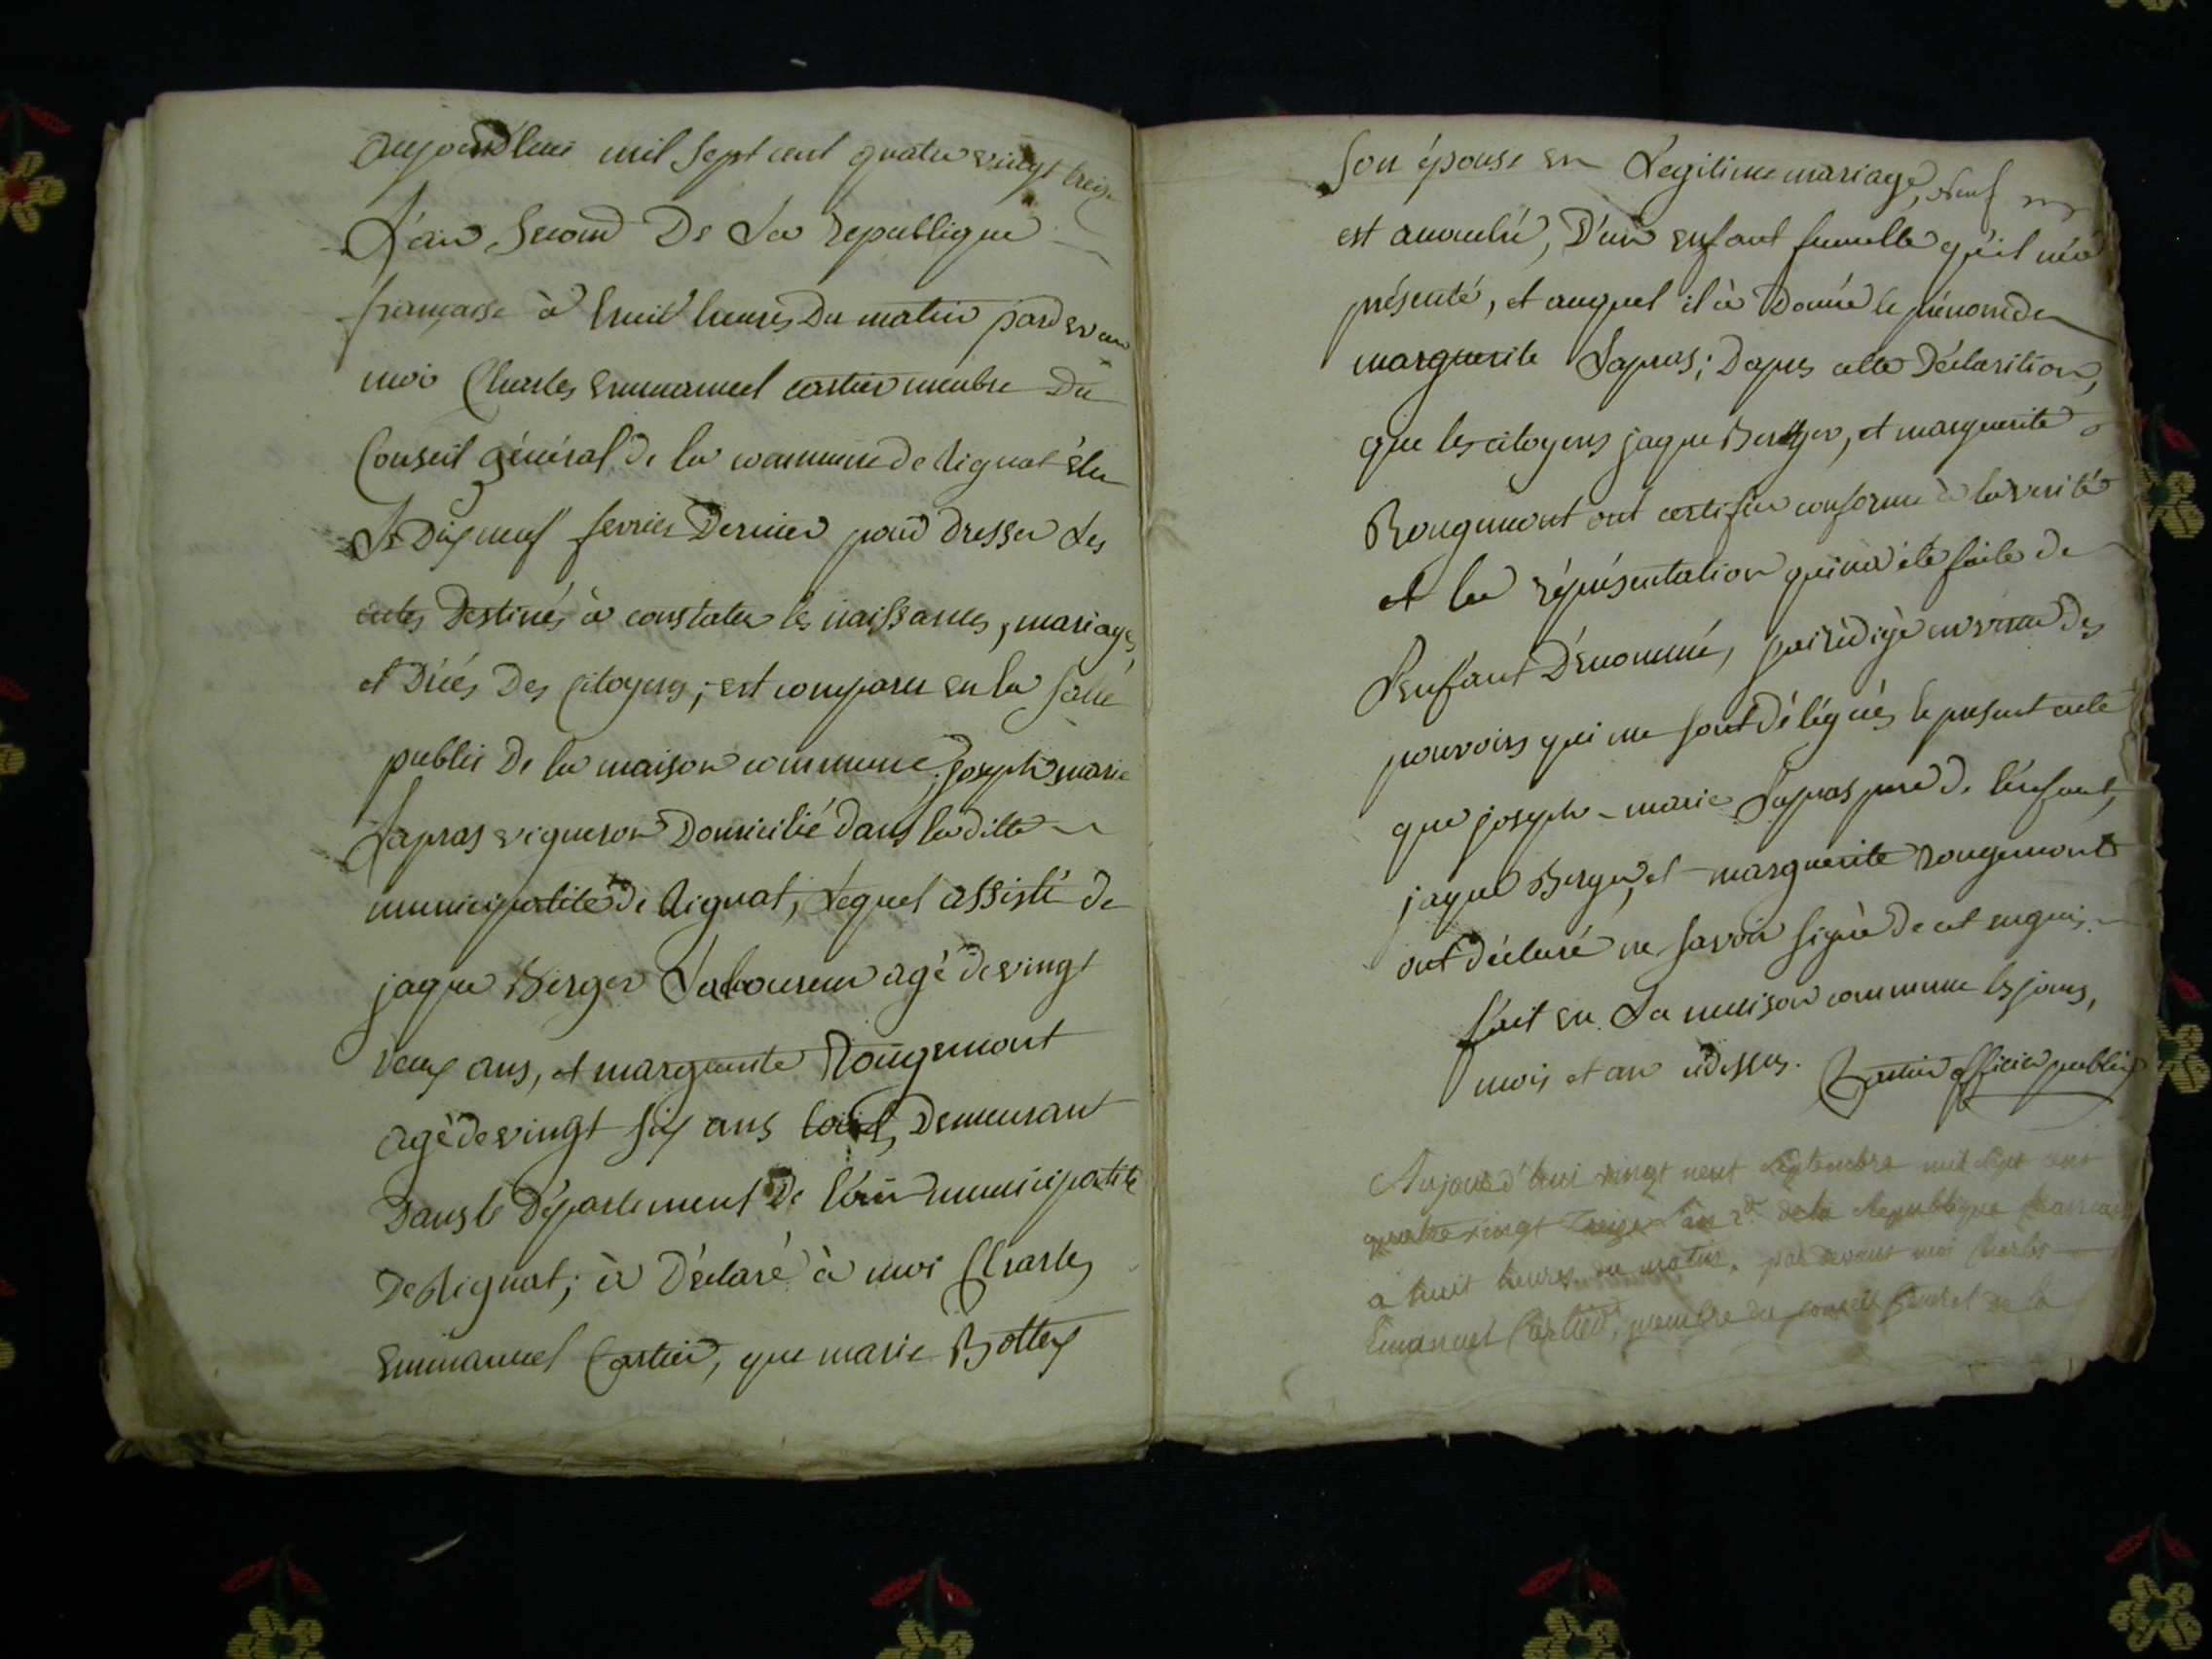 aujourd'huis mil sept cent quatre vingt treize
L'an second De La republique
française à huit heures Du matin pardevan
moi Charles emmanuel cartier membre Du
Conseil général de la commune de Rignat élu
Le Dix neuf fevrier Dernier pour dresser Les
actes Destinés à constater les naissances, mariages,
et Décés Des Citoyens; est comparu en la salle
public De la maison commune, joseph marie
Lapras vigneron Domicilié dans la ditte
municipalité de Rignat, Lequel assisté de
jaque Berger Laboureur agé de vingt
deux ans, et marguerite Rougemont
agé de vingt six ans tous Demeurant
Dans le Département De l'ain municipalité
De Rignat; à Déclaré à moi Charles
Emmanuel Cartier, que marie Bottex
son épouse en Legitime mariage,
est acouché, D'un enfant fumelle qu'il m'a
présenté, et auquel il à Donné le prénom de
marguerite Lapras; Dapres cette Déclarition,
que les citoyens jaque Berger, et marguerite
Rougemont ont certifier conforme à la verité
et la répresentation qui m'a été faite de
L'enfant Dénommé, j'ai rédigé en vertu des
pouvoirs qui me sont délégués le present acte
que joseph-marie Lapras pere de l'enfant,
jaque Berger, et marguerite rougemont
ont déclaré ne savoir signé de cet enquis.
fait en La maison commune les jours,
mois et an cidessus. Cartier officier public
Aujourd'hui vingt neuf Septembre mil Sept cent
quatre vingt Treize L'an 2d. de la Republique francaise
a huit heures du matin. par devant moi Charles
Emanuel Cartier, membre du conseil General de la